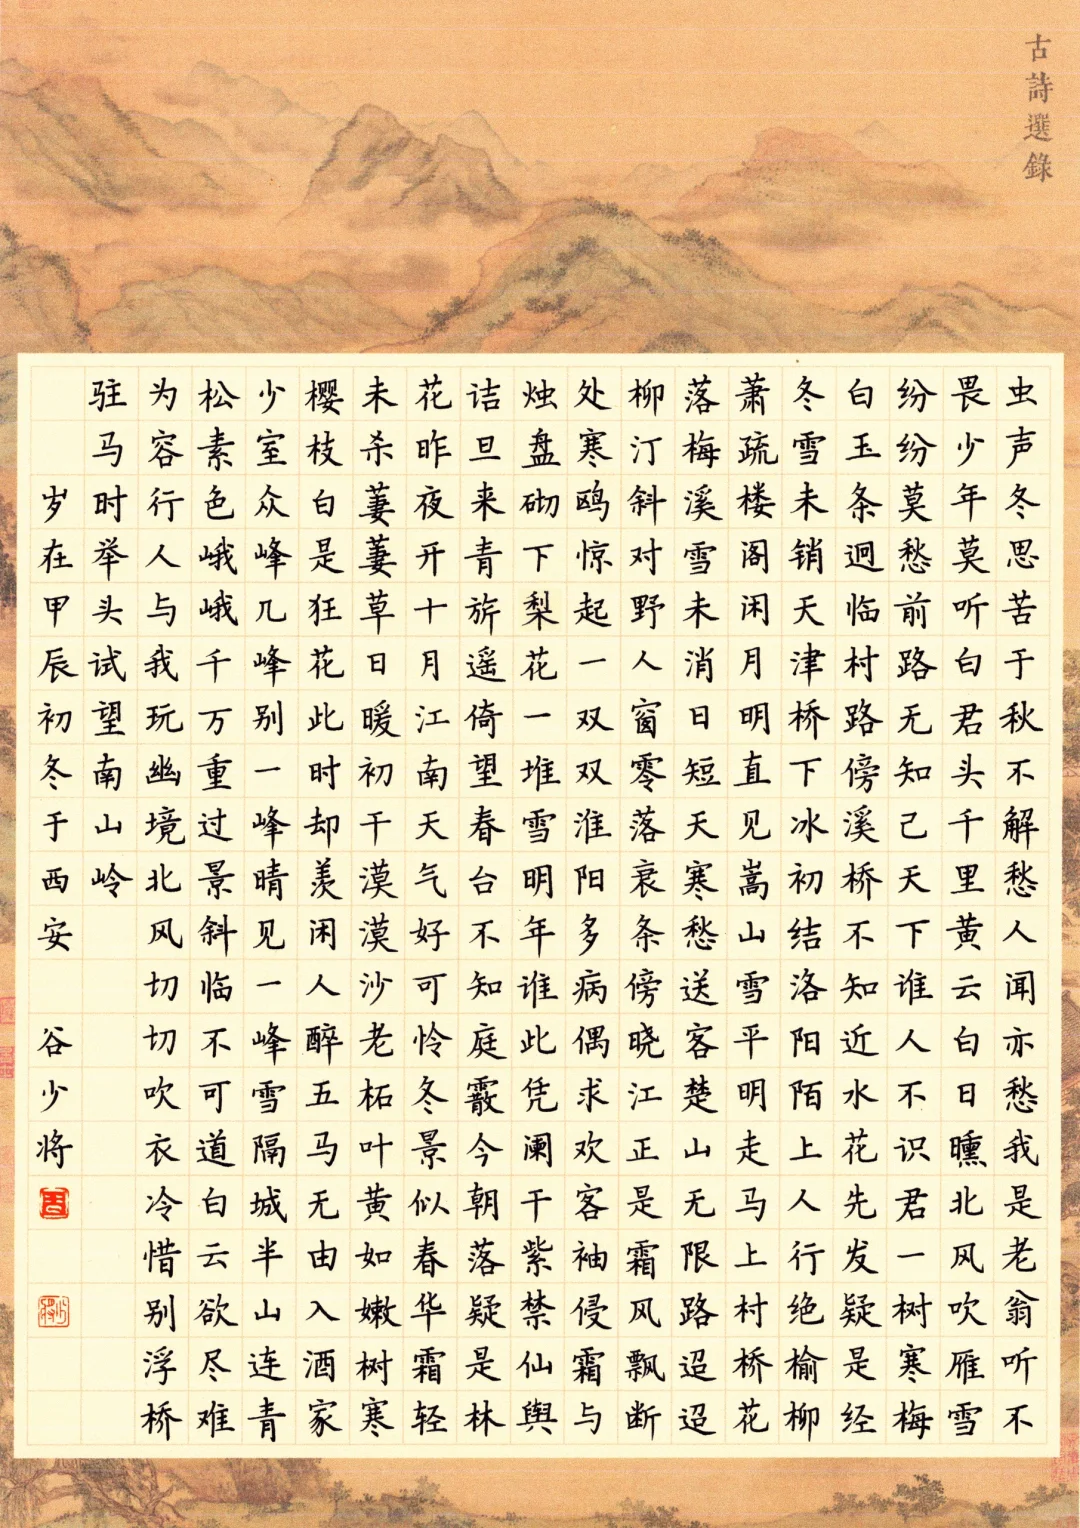 古詩選錄
虫声冬思苦于秋不解愁人闻亦愁我是老翁听不
畏少年莫听白君头千里黄云白日曛北风吹雁雪
纷纷莫愁前路无知己天下谁人不识君一树寒梅
白玉条迥临村路傍溪桥不知近水花先发疑是经
冬雪未销天津桥下冰初结洛阳陌上人行绝榆柳
萧疏楼阁闲月明直见嵩山雪平明走马上村桥花
落梅溪雪未消日短天寒愁送客楚山无限路迢迢
柳汀斜对野人窗零落衰条傍晓江正是霜风飘断
处寒鸥惊起一双双淮阳多病偶求欢客袖侵霜与
烛盘砌下梨花一堆雪明年谁此凭阑干紫禁仙舆
诘旦来青旂遥倚望春台不知庭霰今朝落疑是林
花昨夜开十月江南天气好可怜冬景似春华霜轻
未杀萋萋草日暖初干漠漠沙老柘叶黄如嫩树寒
樱枝白是狂花此时却羡闲人醉五马无由入酒家
少室众峰几峰别一峰晴见一峰雪隔城半山连青
松素色峨峨千万重过景斜临不可道白云欲尽难
为容行人与我玩幽境北风切切吹衣冷惜别浮桥
驻马时举头试望南山岭
岁在甲辰初冬于西安 谷少将